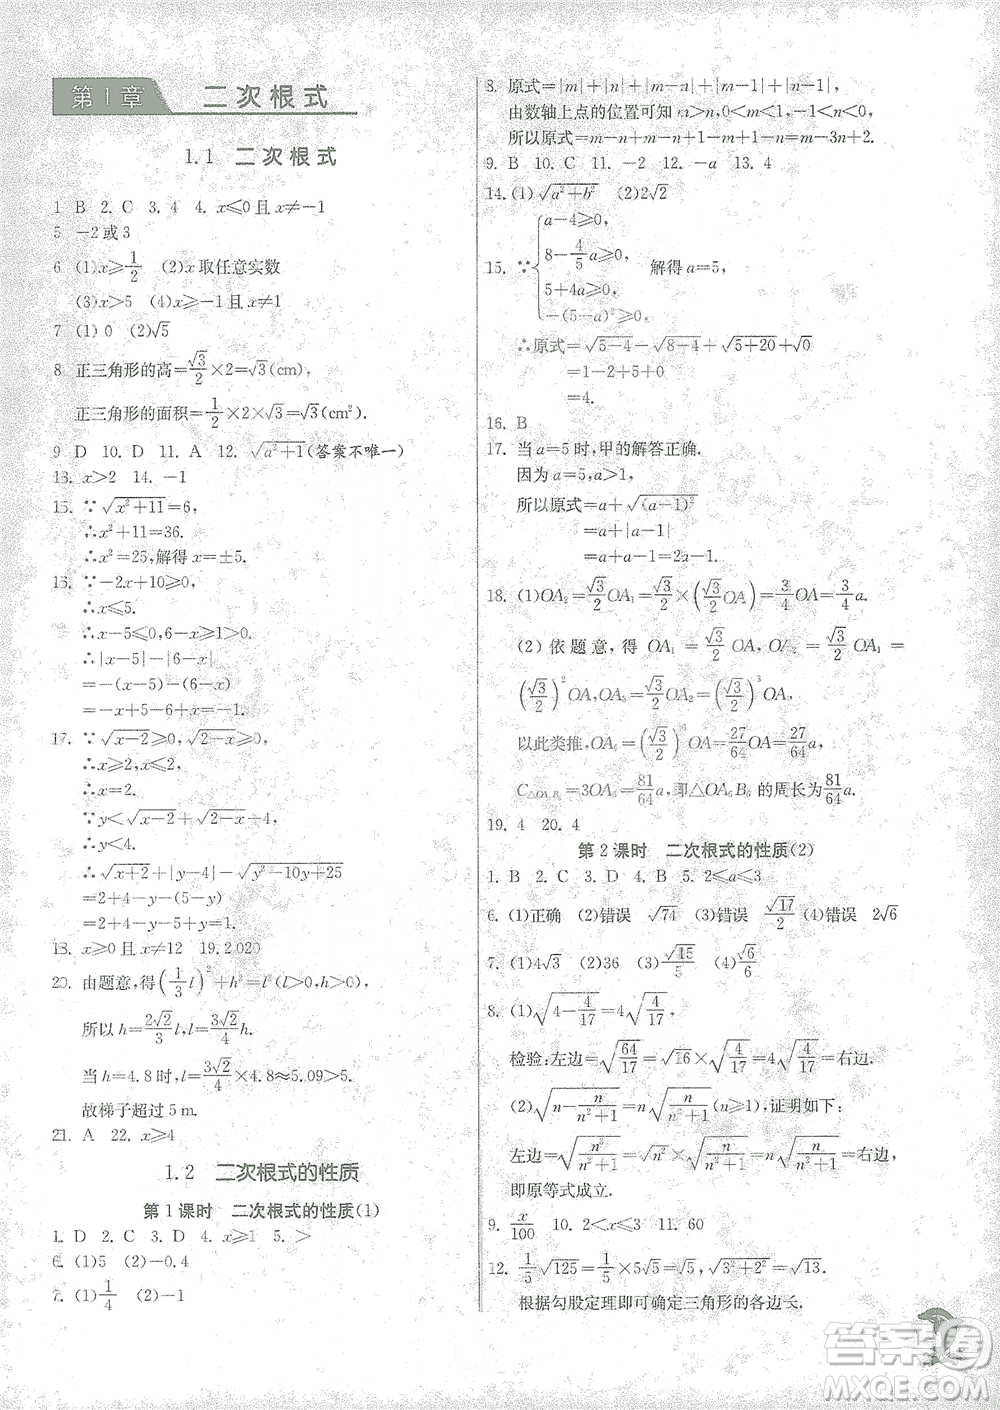 第1章 二次根式
1.1 二次根式
1 B 2. C 3. 4 4. x⩽0且x≠-1
5 -2或3
6 (1)x⩾1/2 (2)x取任意实数
(3)x>5 (4)x⩾-1且x≠1
7 (1)0 (2)√5
8 正三角形的高=√3/2×2=√3(cm),
正三角形的面积=1/2×2×√3=√3(cm²).
9 D 10. D 11. A 12. √(a²+1)(答案不唯一)
13. x>2 14. -1
15. ∵√(x²+11)=6,
∴x²+11=36.
∴x²=25,解得x=±5.
16. ∵-2x+10⩾0,
∴x⩽5.
∴x-5⩽0,6-x⩾1>0.
∴|x-5|-|6-x|
=-(x-5)-(6-x)
=-x+5-6+x=-1.
17. ∵√(x-2)⩾0,√(2-x)⩾0,
∴x⩾2,x⩽2.
∴x=2.
∵y<√(x-2)+√(2-x)+4,
∴y<4.
∴√(x+2)+|y-4|-√(y²-10y+25)
=2+4-y-(5-y)
=2+4-y-5+y=1.
18. x⩾0且x≠12 19. 2 020
20. 由题意,得(1/3 l)²+h²=l²(l>0,h>0),
所以h=2√2/3 l,l=3√2/4 h.
当h=4.8时,l=3√2/4×4.8≈5.09>5.
故梯子超过5 m.
21. A 22. x⩾4
1.2 二次根式的性质
第1课时 二次根式的性质(1)
1. D 2. C 3. D 4. x⩾1 5. >
6. (1)5 (2)-0.4
7. (1)1/4 (2)-1
8. 原式=|m|+|n|+|m-n|+|n-1|-|m-1|.
由数轴上点的位置可知m>n,0<m<1,-1<n<0,
所以原式=m-n+m-n+1-n-1+m=m-3n+2.
9. B 10. C 11. -2 12. -a 13. 4
14. (1)√(a²+b²) (2)2√2
15. ∵{a-4⩾0, 8-4/5 a⩾0, 5+4a⩾0, -(5-a)²⩾0, 解得a=5,
∴原式=√(5-4)-√(8-4)+√(5+20)+√0
=1-2+5
=4.
16. B
17. 当a=5时,甲的解答正确.
因为a=5,
所以原式=a+√((a-1)²)
=a+|a-1|
=a+a-1=2a-1.
18. (1)OA₂=√3/2 OA₁=√3/2×(√3/2 OA)=3/4 OA=3/4 a.
(2)依题意,得OA₁=√3/2 OA,OA₂=√3/2 OA₁=
(√3/2)² OA,OA₃=√3/2 OA₂=(√3/2)³ OA,
以此类推,OA₆=(√3/2)⁶ OA=27/64 OA=27/64 a,
C△OA₆B₆=3OA₆=81/64 a,即△OA₆B₆的周长为81/64 a.
19. 4 20. 4
第2课时 二次根式的性质(2)
1. B 2. C 3. D 4. B 5. 2⩽a⩽3
6. (1)正确 (2)错误 √74 (3)错误 √17/2 (4)错误 2√6
7. (1)4√3 (2)36 (3)√15/5 (4)√6
8. (1)√(4-4/17)=4√(4/17),
检验:左边=√(64/17)=√16×√(4/17)=4√(4/17)=右边.
(2)√(n-n/(n²+1))=n√(n/(n²+1))(n⩾1),证明如下:
左边=√(n³/(n²+1))=√(n²)×√(n/(n²+1))=n√(n/(n²+1))=右边,
即原等式成立.
9. x/100 10. 2<x⩽3 11. 60
12. 1/5√125=1/5×5√5=√5,√(2²+3²)=√13.
根据勾股定理即可确定三角形的各边长.
答案圈
MXQE.COM